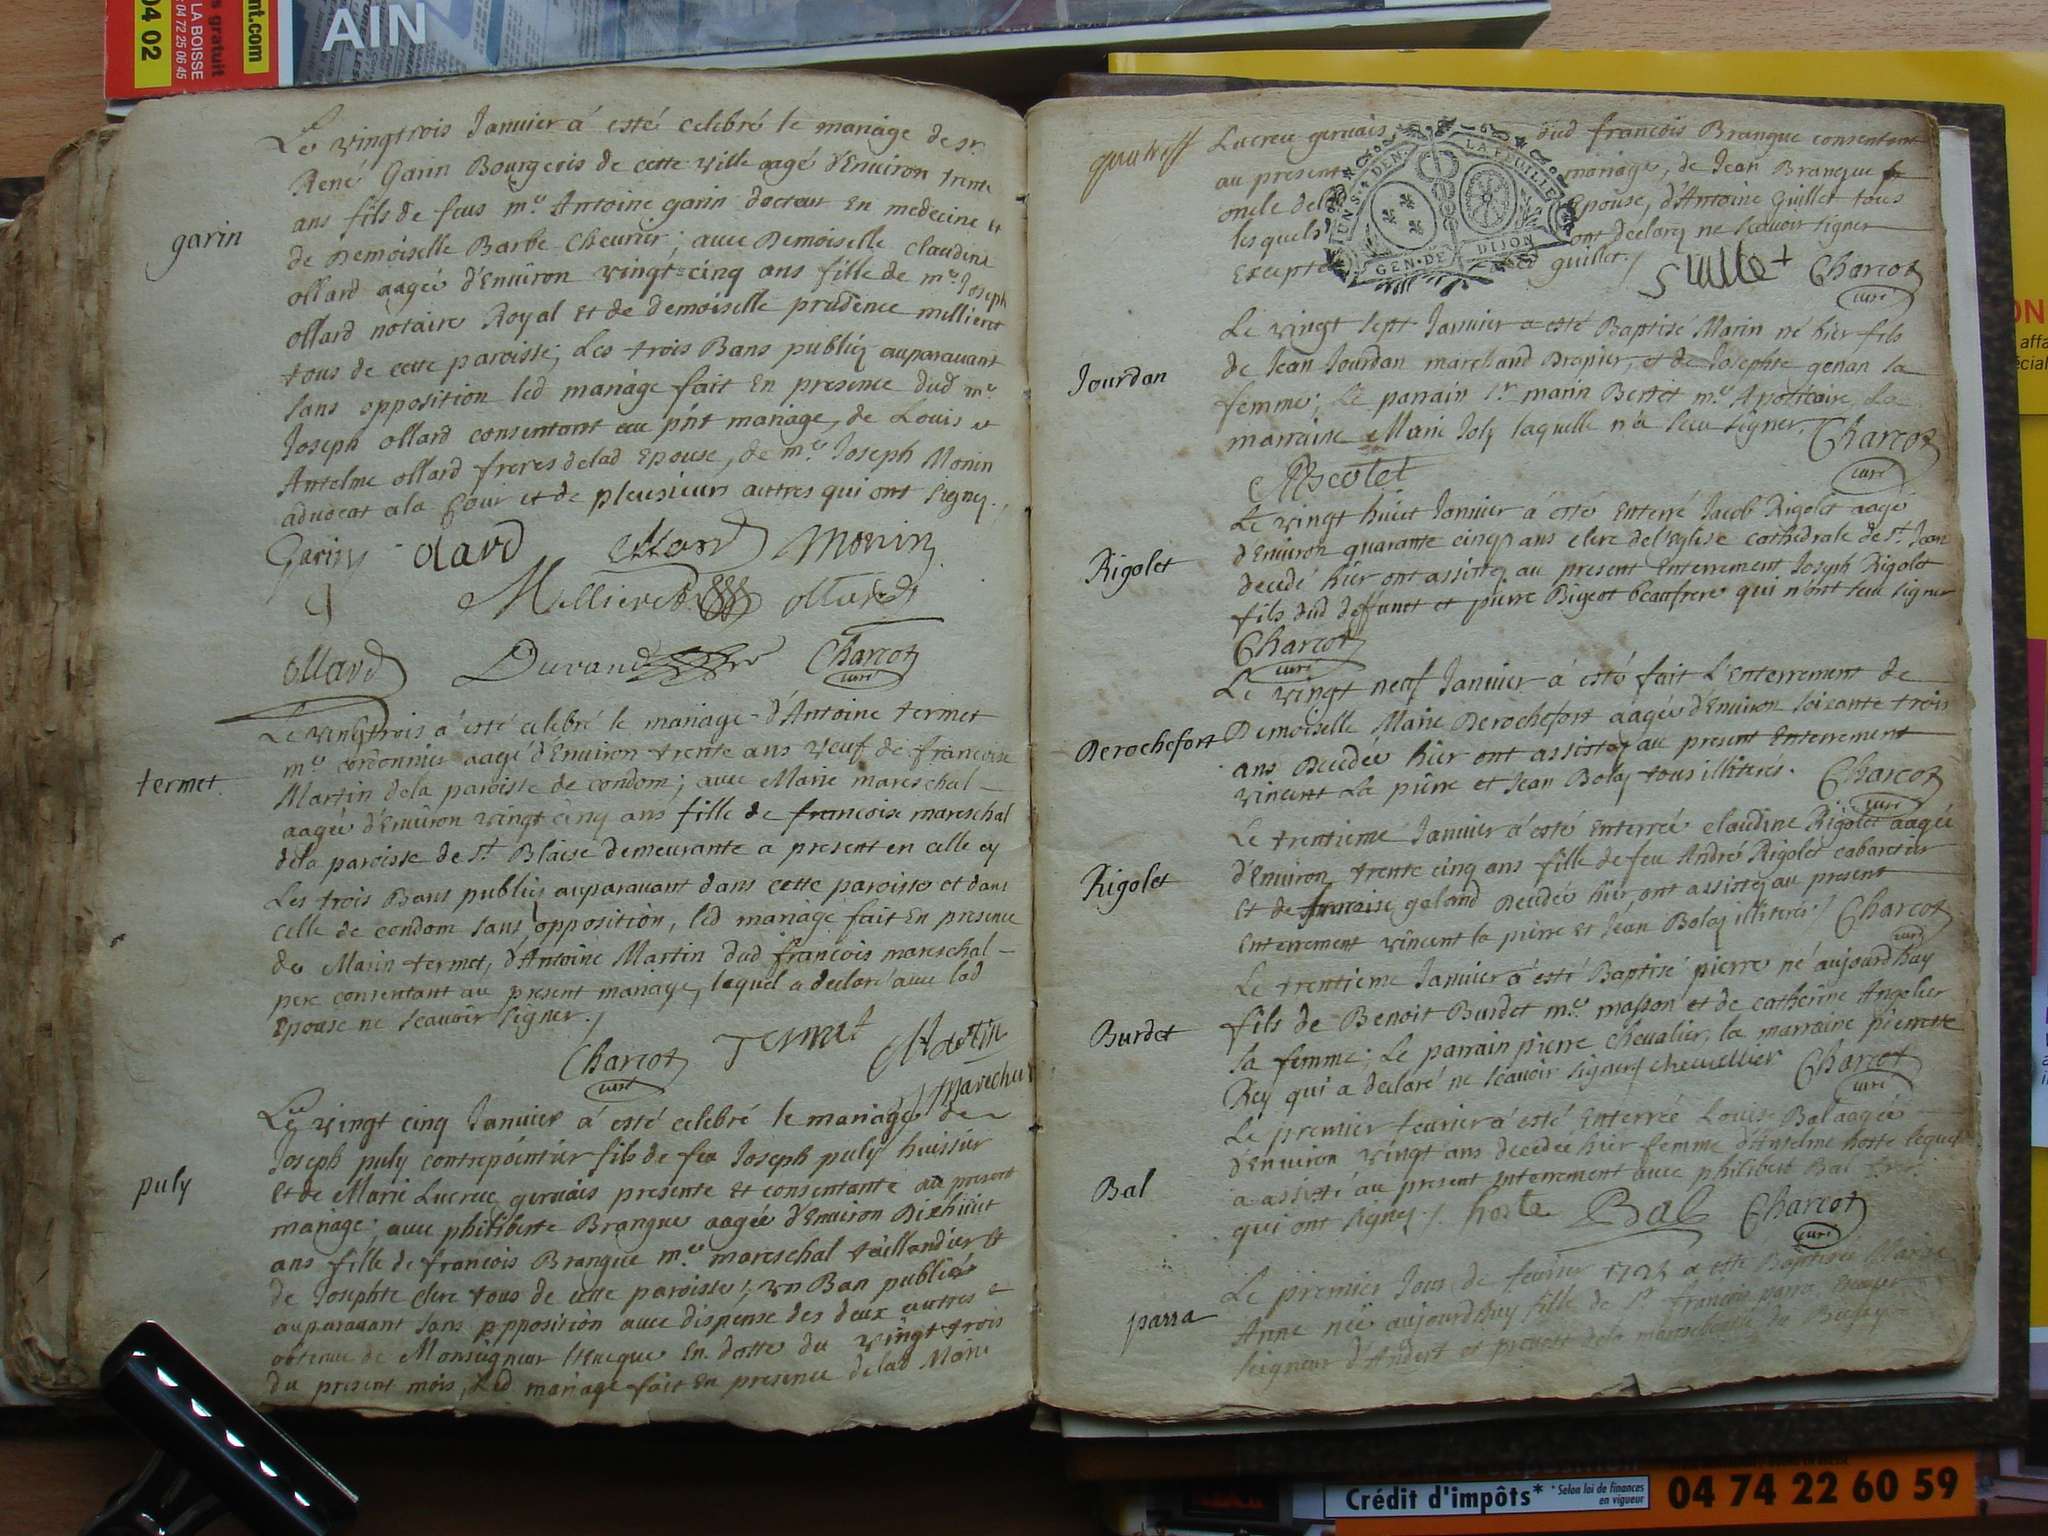 AIN
04 02
LA BOISSE
04 72 25 06 45
s gratuit
nt.com
Le vingtrois Janvier á esté celebré le mariage de sr.
René Garin Bourgeois de cette ville aagé d'Environ trente
ans fils de feus me. Antoine garin docteur En medecine et
garin
de Demoiselle Barbe Chevrier; avec Demoiselle Claudine
ollard aagée d'Environ vingt=cinq ans fille de me. Joseph
ollard notaire Royal et de demoiselle prudence millieret
tous de cette paroisse; Les trois Bans publiez auparavant
sans opposition led mariage fait En presence dud me.
Joseph ollard consentant au pnt mariage, de Louis et
Antelme ollard freres delad Epouse, de me. Joseph Monin
advocat ala Cour et de pleusieurs autres qui ont signez.
Garin olard ollard Monin
Millieret ollard
ollard Durand Charcot
curé
Le vingtrois á esté celebré le mariage d'Antoine termet
me. cordonnier aagé d'Environ trente ans veuf de francoise
termet
Martin dela paroisse de condom; avec Marie mareschal
aagée d'Environ vingt cinq ans fille de francoise mareschal
dela paroisse de st. Blaise demeurante a present en celle cy
Les trois Bans publiez auparavant dans cette paroisse et dans
celle de condom sans opposition, led mariage fait En presence
de Marin termet, d'Antoine Martin dud francois mareschal
pere consentant au present mariage, lequel a declaré avec lad
Epouse ne scavoir signer.
Charcot Termet Martin
curé
Marechal
Le vingt cinq Janvier á esté celebré le mariage de
Joseph puly contrepointier fils de feu Joseph puly huissier
puly
Et de Marie Lucrece gervais presente et consentante au present
mariage; avec philiberte Brangue aagée d'Environ Dixhuit
ans fille de francois Brangue me. mareschal taillandier et
de Josephte clerc tous de cette paroisse; un Ban publié
auparavant sans opposition avec dispense des deux autres
obtenue de Monseigneur l'Eveque En datte du vingt trois
du present mois, Led mariage fait En presence delad Marie
Lucrece gervais, dud francois Brangue consentant
au present mariage, de Jean Brangue
oncle del Epouse, d'Antoine Guillet tous
lesquels ont declarez ne scavoir signer
Excepté led guillet.
GEN·DE DIJON
LA FEUILLE
guillet Charcot
curé
Le vingt sept Janvier a esté Baptisé Marin né hier fils
Jourdan
de Jean Jourdan marchand Drapier, et de Josephte genan sa
femme; Le parrain sr. marin Bertet me. Apoticaire, La
marraine Marie Joly laquelle n'a sceu signer. Charcot
curé
Le vingt huict Janvier á esté Enterré Jacob Rigolet aagé
Rigolet
d'Environ quarante cinq ans clerc del'Eglise cathedrale de st. Jean
decedé hier ont assistez au present Enterrement Joseph Rigolet
fils dud deffunct et pierre Bigeot beaufrere qui n'ont sceu signer
Charcot
curé
Le vingt neuf Janvier á esté fait l'Enterrement de
Derochefort
Demoiselle Marie Derochefort aagée d'Environ soixante trois
ans Decedée hier ont assistez au present Enterrement
vincent La pierre et Jean Boley tous illiterés. Charcot
curé
Le trentieme Janvier á esté Enterrée claudine Rigolet aagée
Rigolet
d'Environ trente cinq ans fille de feu André Rigolet cabaretier
et de francoise galand Decedée hier, ont assistez au present
Enterrement vincent la pierre et Jean Boley illiterés. Charcot
curé
Le trentieme Janvier á esté Baptisé pierre né aujourdhuy
Burdet
fils de Benoit Burdet me. masson et de catherine Angelier
sa femme; Le parrain pierre chevalier, la marraine pierrette
Rey qui a declaré ne scavoir signer chevallier Charcot
curé
Le premier fevrier á esté Enterrée Louise Bal aagée
d'Environ vingt ans decedée hier femme d'Antelme hoste lequel
Bal
a assisté au present Enterrement avec philibert Bal
qui ont signez. hoste Bal Charcot
curé
Le premier Jour de fevrier a esté Baptisée Marie
parra
Anne née aujourdhuy fille de sr. francois parra Escuyer
seigneur d'Andert et prevost dela mareschaussée du Bugey
Crédit d'impôts*
* Selon loi de finances
en vigueur
04 74 22 60 59